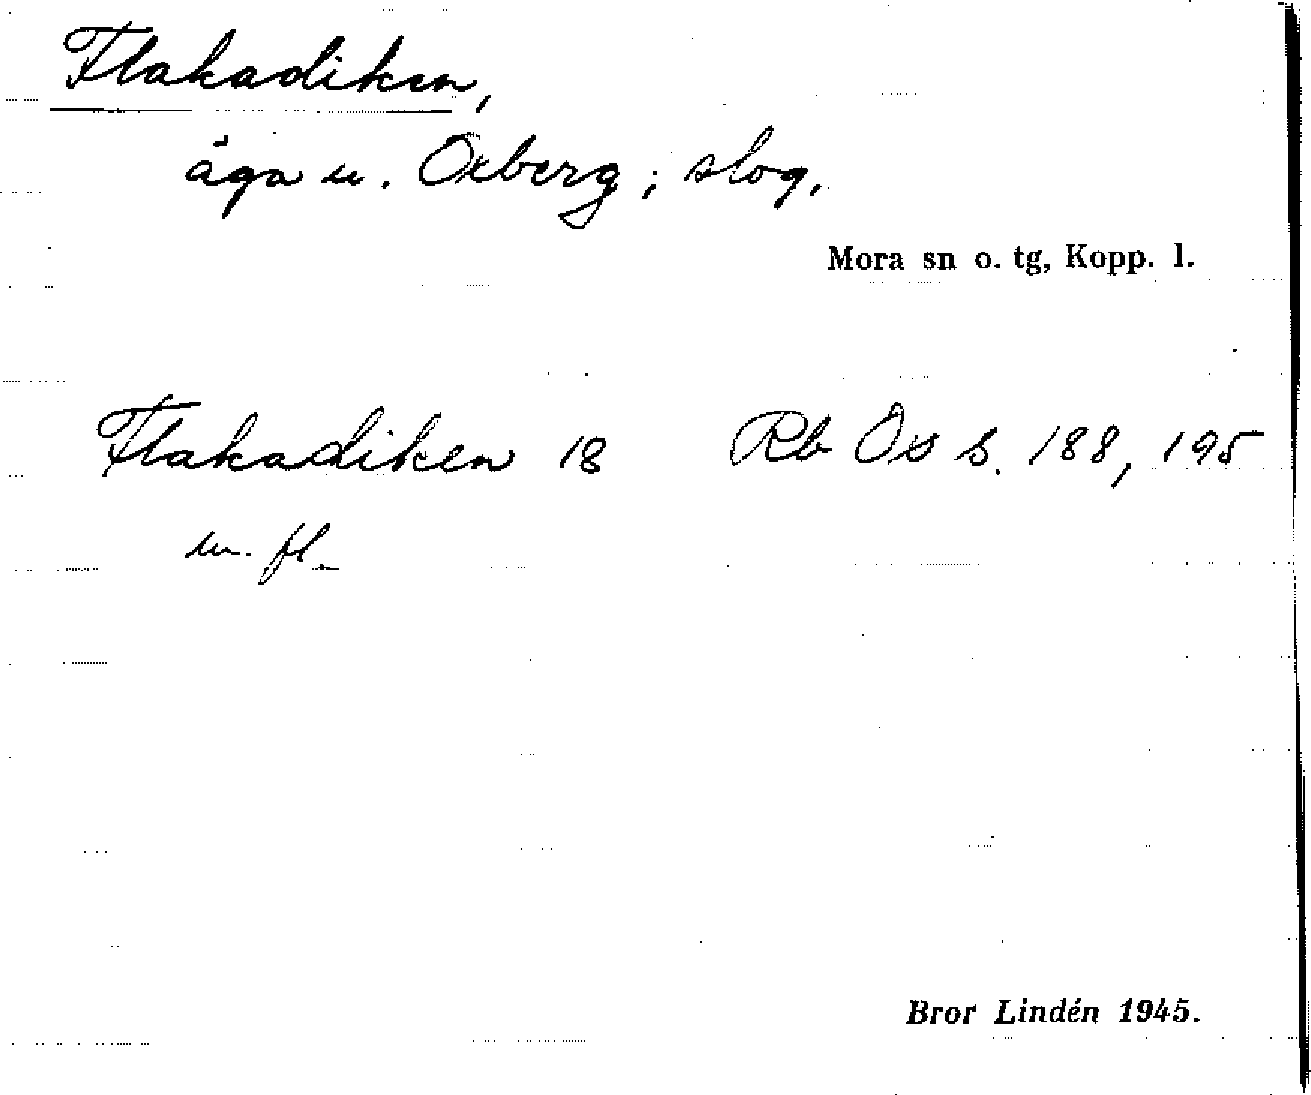 Flakadiken,
äga u. Oxberg; slog.
Mora sn o. tg, Kopp. l.
Flakadiken 18 Rb Ox s. 188, 195
m. fl.
Bror Lindén 1945.